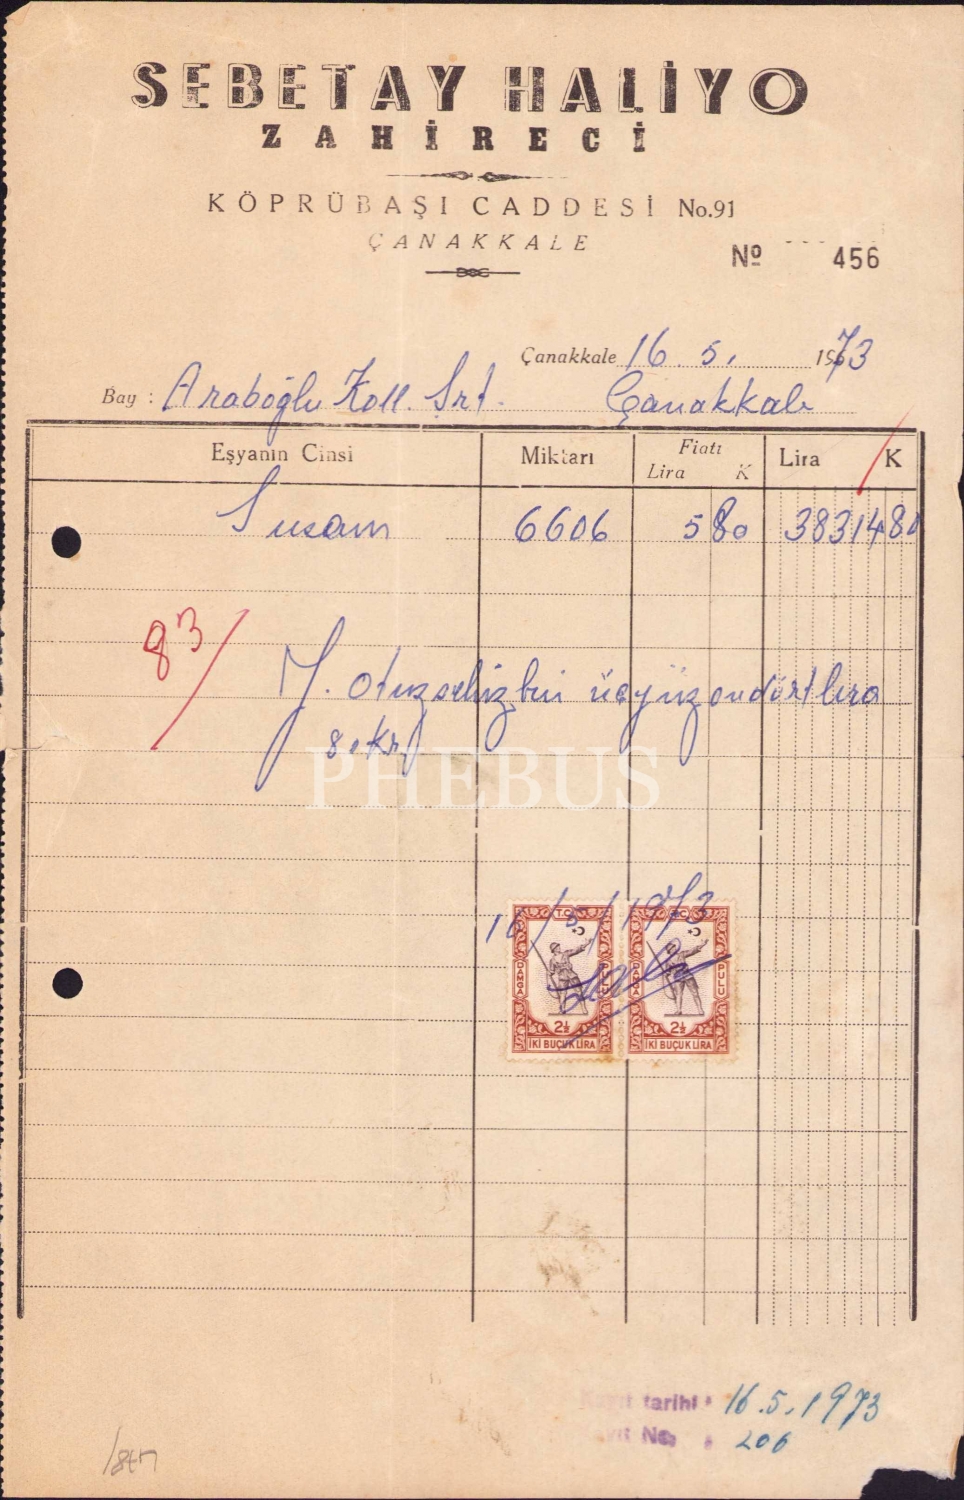 SEBETAY HALİYO
ZAHİRECİ
KÖPRÜBAŞI CADDESİ No.91
ÇANAKKALE
No 456
Çanakkale 16.5. 1973
Bay : Araboğlu Koll. Şrt. Çanakkale
Eşyanın Cinsi Miktarı Fiatı Lira K Lira K
Susam 6606 5 80 38314 80
83
Y. otuzsekizbin üçyüzondörtlira
80 kr.
PHEBUS
16/5/1973
T.C. T.C.
DAMGA PULU DAMGA PULU
2½ 2½
İKİ BUÇUK LİRA İKİ BUÇUK LİRA
Kayıt tarihi : 16.5.1973
Kayıt No. : 206